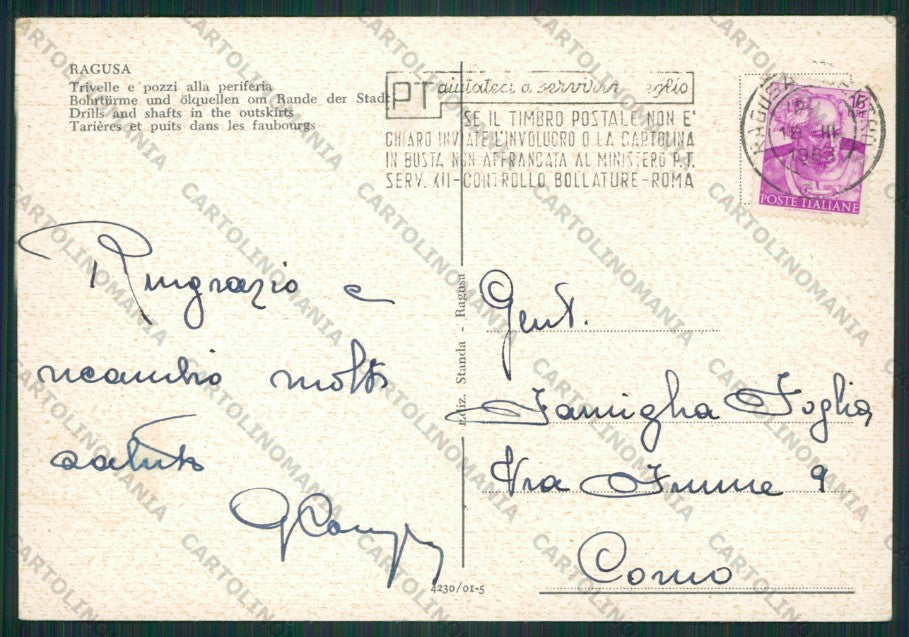 RAGUSA
Trivelle e pozzi alla periferia
Bohrtürme und ölquellen om Rande der Stadt
Drills and shafts in the outskirts
Tarières et puits dans les faubourgs
PT aiutateci a servirvi meglio
SE IL TIMBRO POSTALE NON E'
CHIARO INVIATE L'INVOLUCRO O LA CARTOLINA
IN BUSTA NON AFFRANCATA AL MINISTERO P.T.
SERV. XII-CONTROLLO BOLLATURE-ROMA
RAGUSA
18 III
1963
15
LIRE
POSTE ITALIANE
Ringrazio e
ricambio molti
saluti
Ediz. Standa - Ragusa
Gent.
Famiglia Foglia
Via Fiume 9
Como
4230/01-5
CARTOLINOMANIA